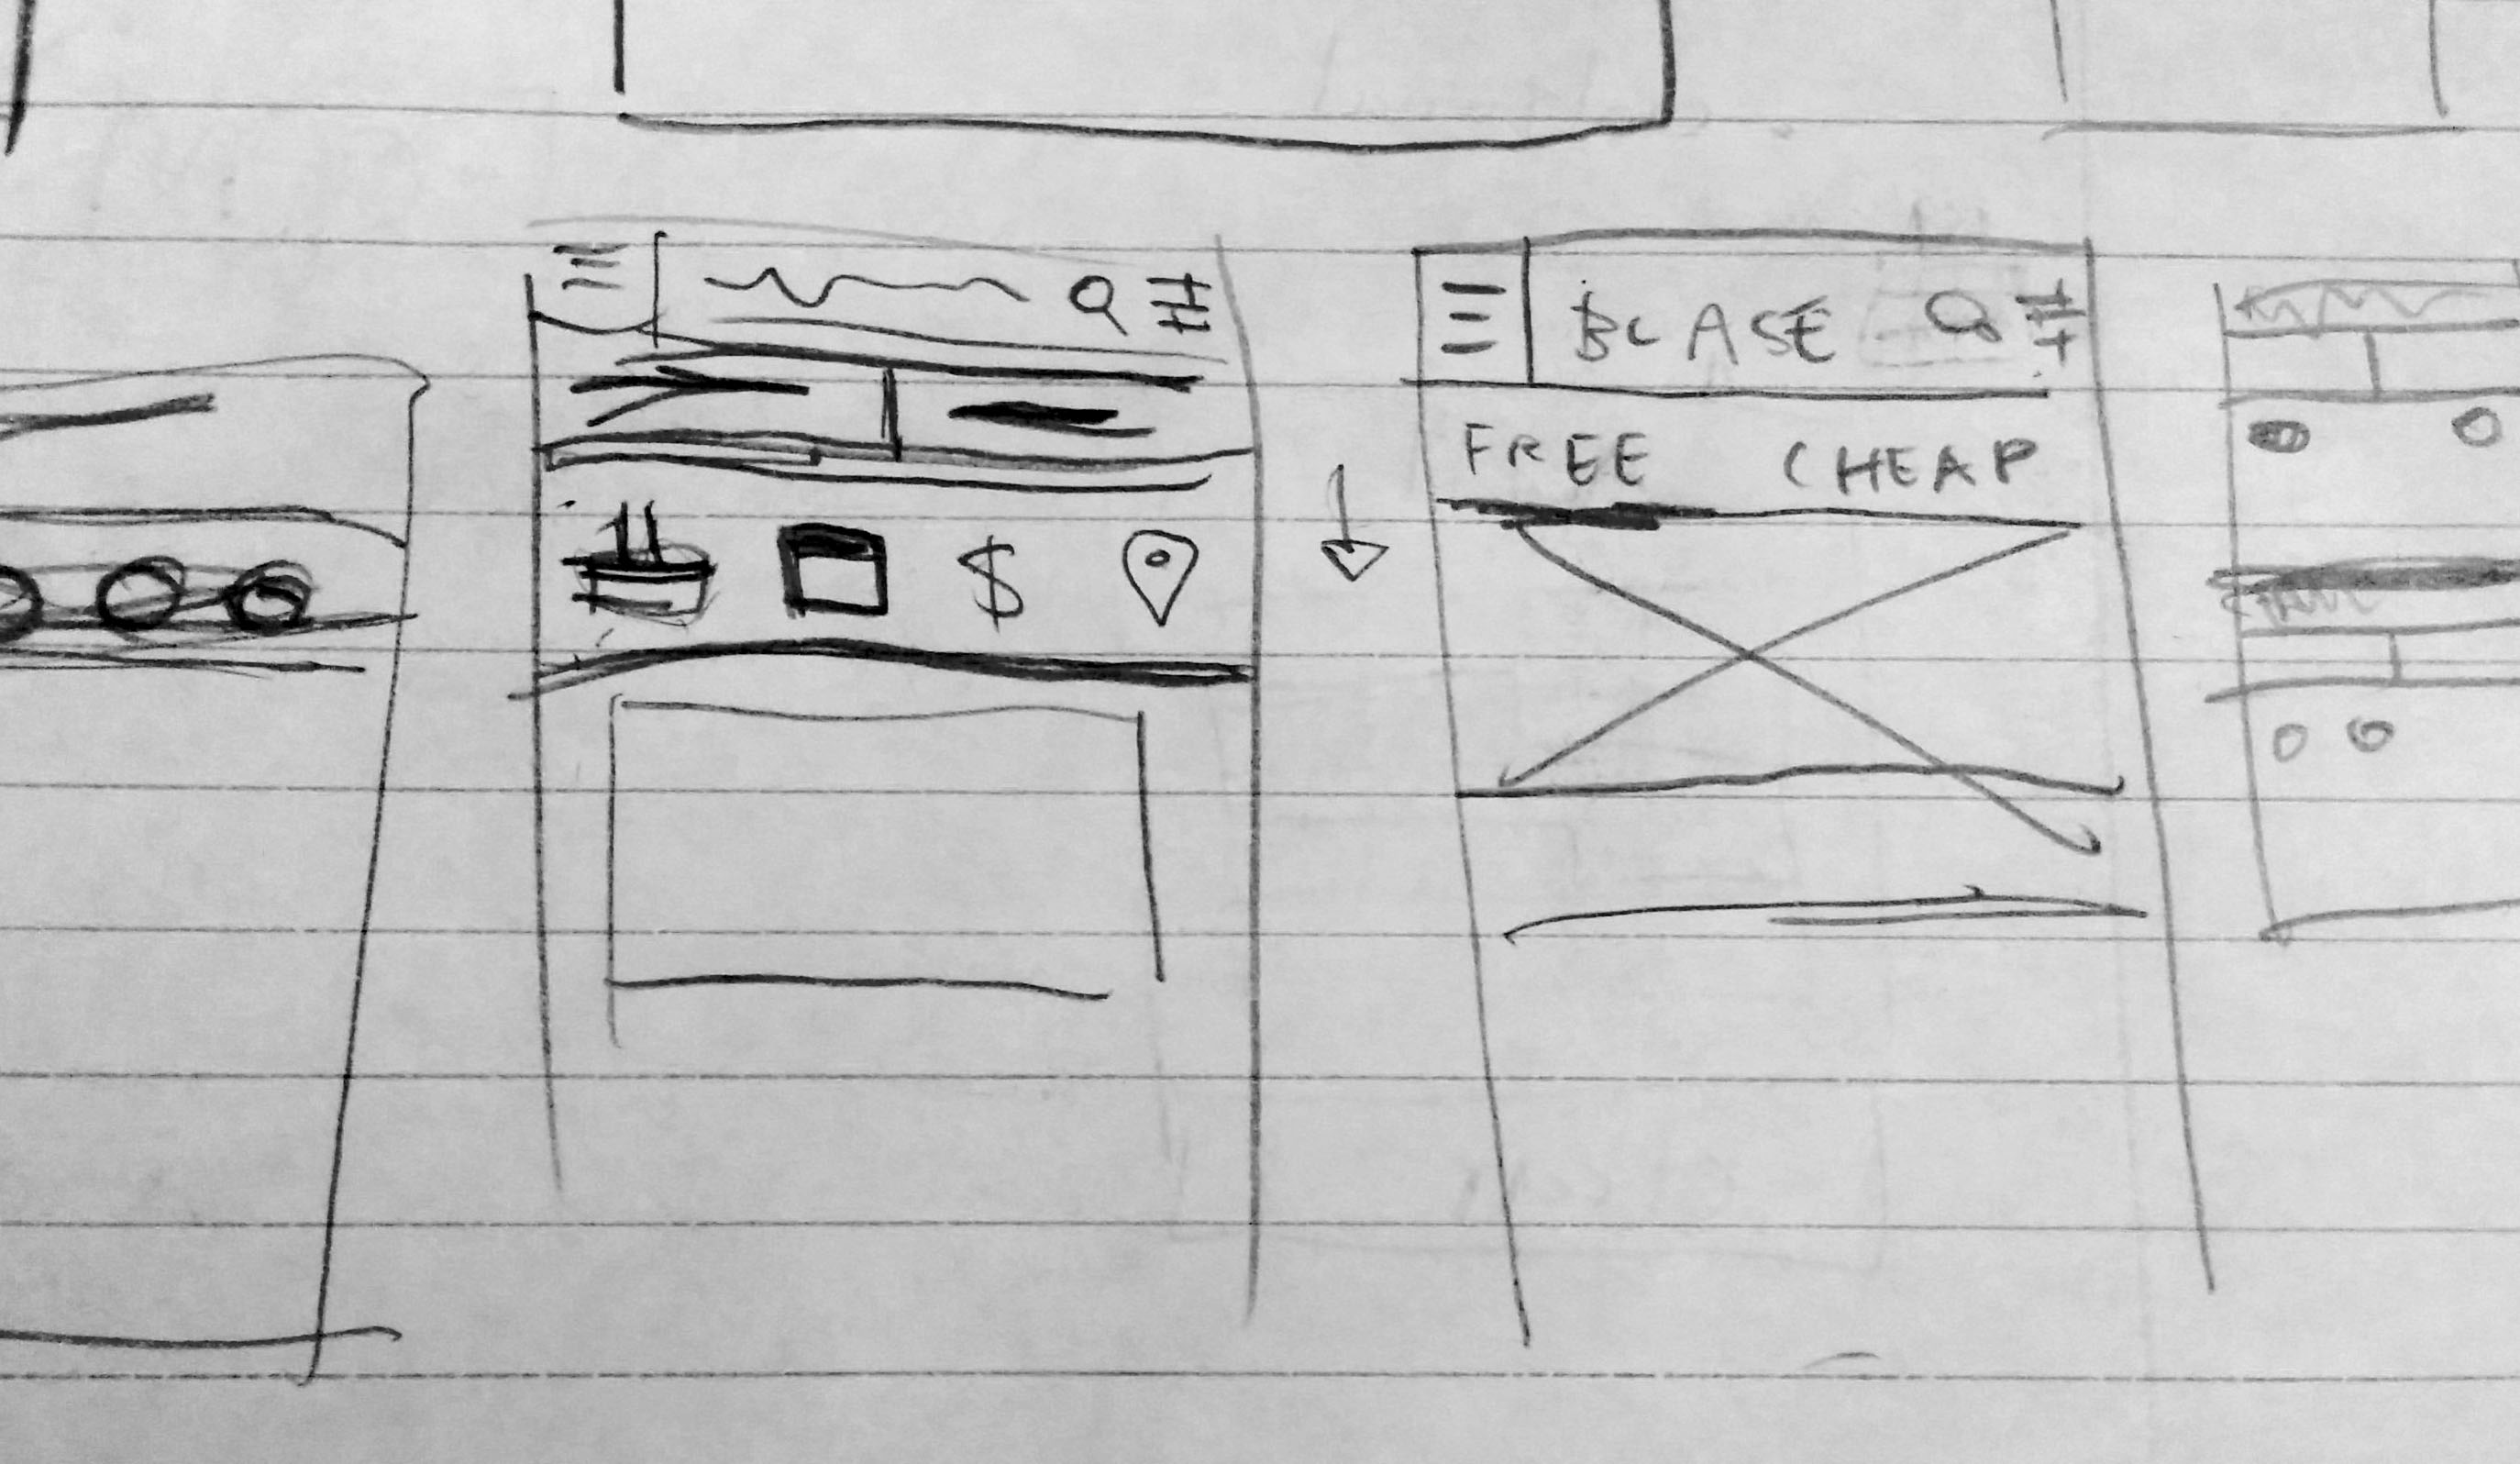 $
BLASE
FREE CHEAP